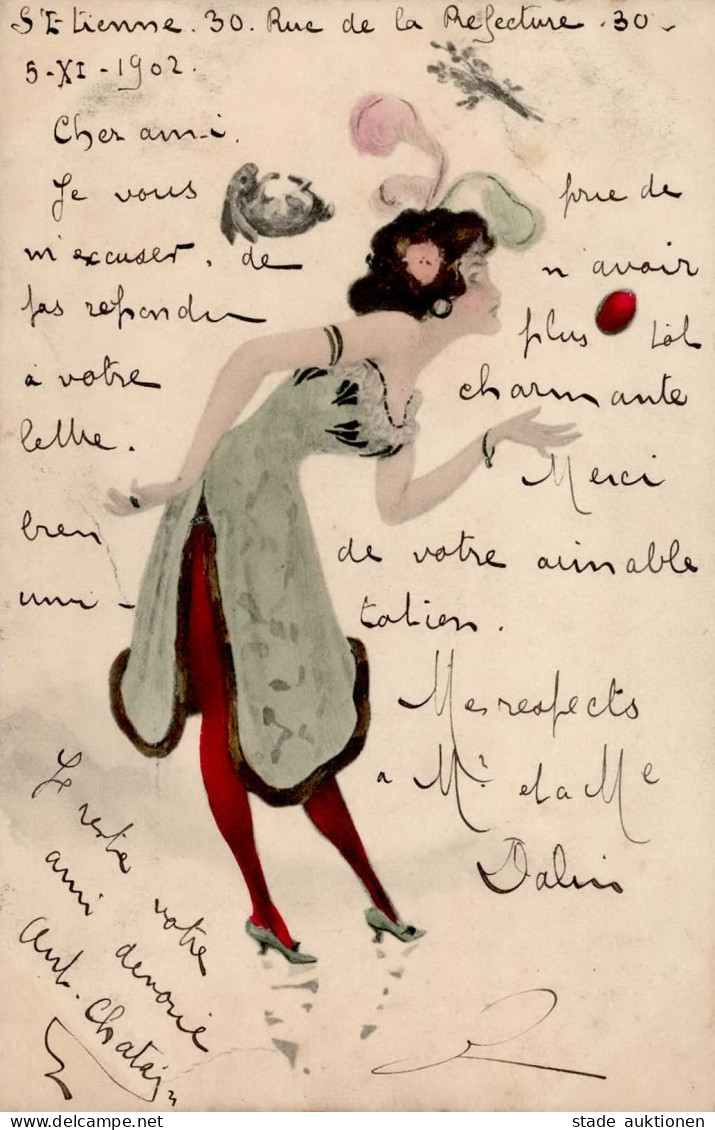 St Etienne. 30. Rue de la Prefecture. 30 -
5 - XI - 1902.
Cher ami.
Je vous prie de
m'excuser, de n'avoir
pas repondu plus tot
à votre charmante
lettre. Merci
bien de votre aimable
tion.
Mes respects
a Mr. et a Me
Je reste votre
ami devoué
Ant. Chatain
stade auktionen